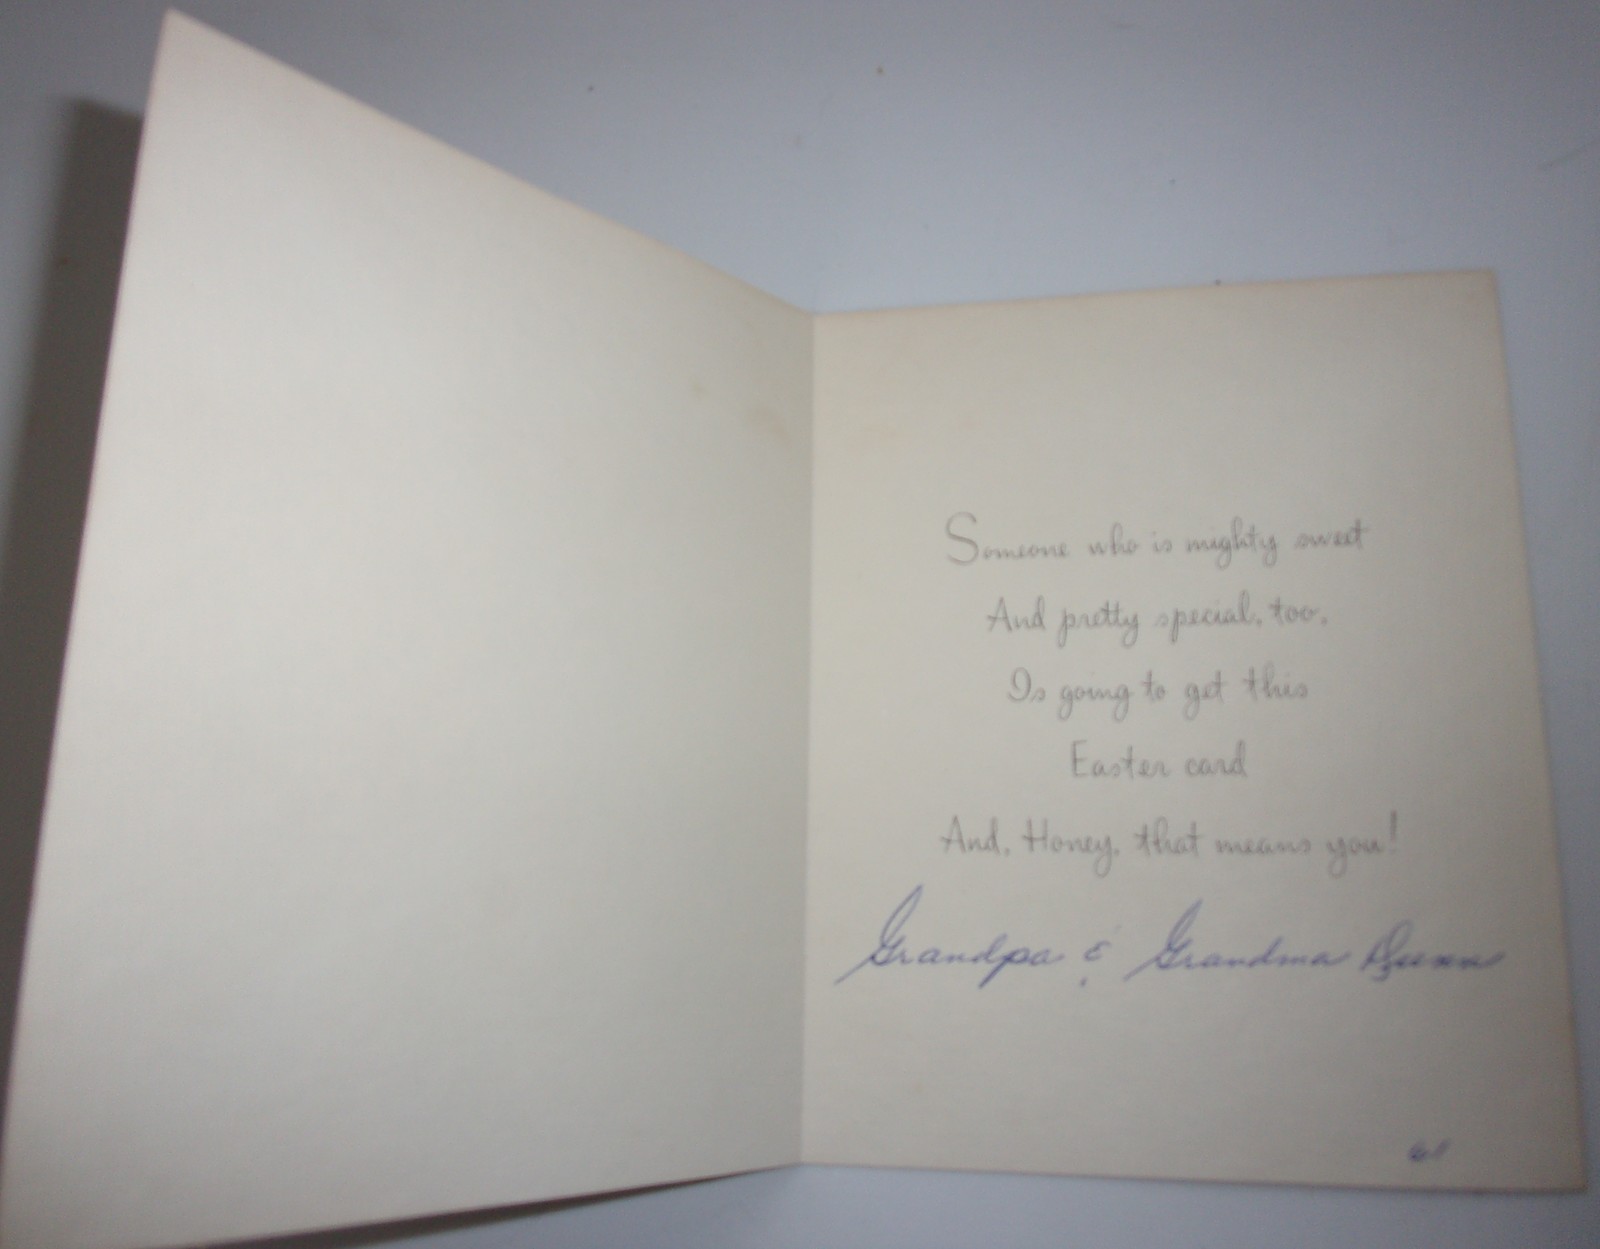 Someone who is mighty sweet
And pretty special, too,
Is going to get this
Easter card
And, Honey, that means you!
Grandpa & Grandma Dunn